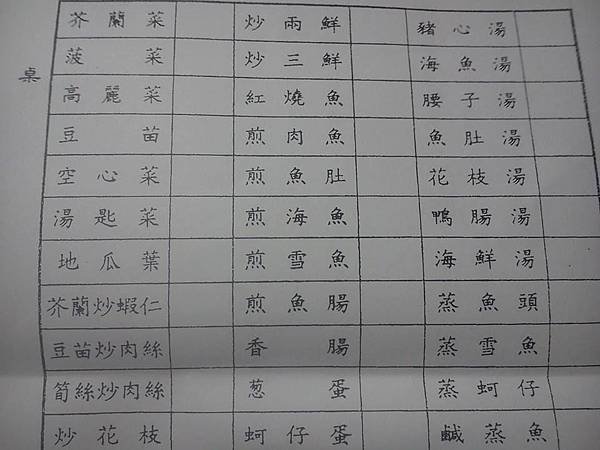 桌
芥蘭菜 炒兩鮮 豬心湯
菠菜 炒三鮮 海魚湯
高麗菜 紅燒魚 腰子湯
豆苗 煎肉魚 魚肚湯
空心菜 煎魚肚 花枝湯
湯匙菜 煎海魚 鴨腸湯
地瓜葉 煎雪魚 海鮮湯
芥蘭炒蝦仁 煎魚腸 蒸魚頭
豆苗炒肉絲 香腸 蒸雪魚
筍絲炒肉絲 葱蛋 蒸蚵仔
炒花枝 蚵仔蛋 鹹蒸魚